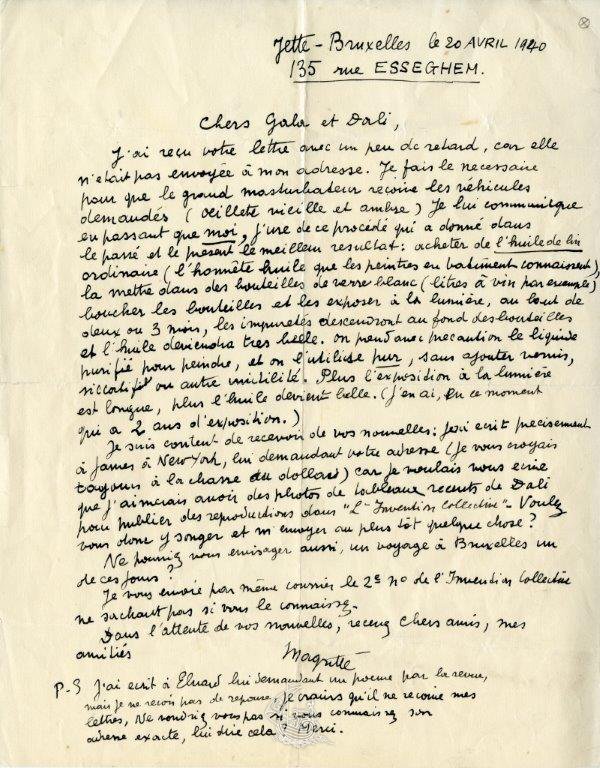 Jette - Bruxelles le 20 AVRIL 1940
135 rue ESSEGHEM.
Chers Gala et Dali,
J'ai reçu votre lettre avec un peu de retard, car elle
n'était pas envoyée à mon adresse. Je fais le necessaire
pour que le grand masturbateur reçoive les véhicules
demandés (œillette vieille et ambre) Je lui communique
en passant que moi, j'use de ce procédé qui a donné dans
le passé et le présent le meilleur resultat : acheter de l'huile de lin
ordinaire (l'honnête huile que les peintres en batiment connaissent),
la mettre dans des bouteilles de verre blanc (litres à vin par exemple)
boucher les bouteilles et les exposer à la lumière, au bout de
deux ou 3 mois, les impuretés descendront au fond des bouteilles
et l'huile deviendra tres belle. On prend avec precaution le liquide
purifié pour peindre, et on l'utilise pur, sans ajouter vernis,
siccatif ou autre inutilité. Plus l'exposition à la lumière
est longue, plus l'huile devient belle. (J'en ai, en ce moment
qui a 2 ans d'exposition.)
Je suis content de recevoir de vos nouvelles : j'ai ecrit precisement
à James à New York, lui demandant votre adresse (je vous croyais
toujours à la chasse au dollars) car je voulais vous ecrire
que j'aimerais avoir des photos de tableaux recents de Dali
pour publier des reproductions dans "L'Invention Collective" - Voulez
vous donc y songer et m'envoyer au plus tôt quelque chose ?
Ne pourriez vous envisager aussi, un voyage à Bruxelles un
de ces jours ?
Je vous envoie par même courrier le 2e no de l'Invention Collective
ne sachant pas si vous le connaissez.
Dans l'attente de vos nouvelles, recevez chers amis, mes
amitiés
Magritte
P.S J'ai ecrit à Eluard lui demandant un poème par la revue,
mais je ne reçois pas de reponse, je crains qu'il ne reçoive mes
lettres, Ne voudriez vous pas si vous connaissez son
adresse exacte, lui dire cela ? Merci.